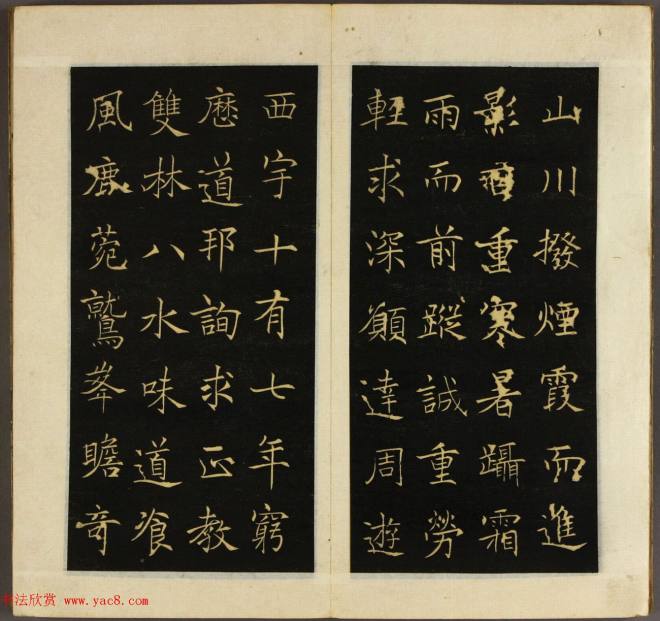 山川撥煙霞而進
影百重寒暑躡霜
雨而前蹤誠重勞
輕求深願達周遊
西宇十有七年窮
歷道邦詢求正教
雙林八水味道飡
風鹿菀鷲峯瞻奇
书法欣赏 www.yac8.com